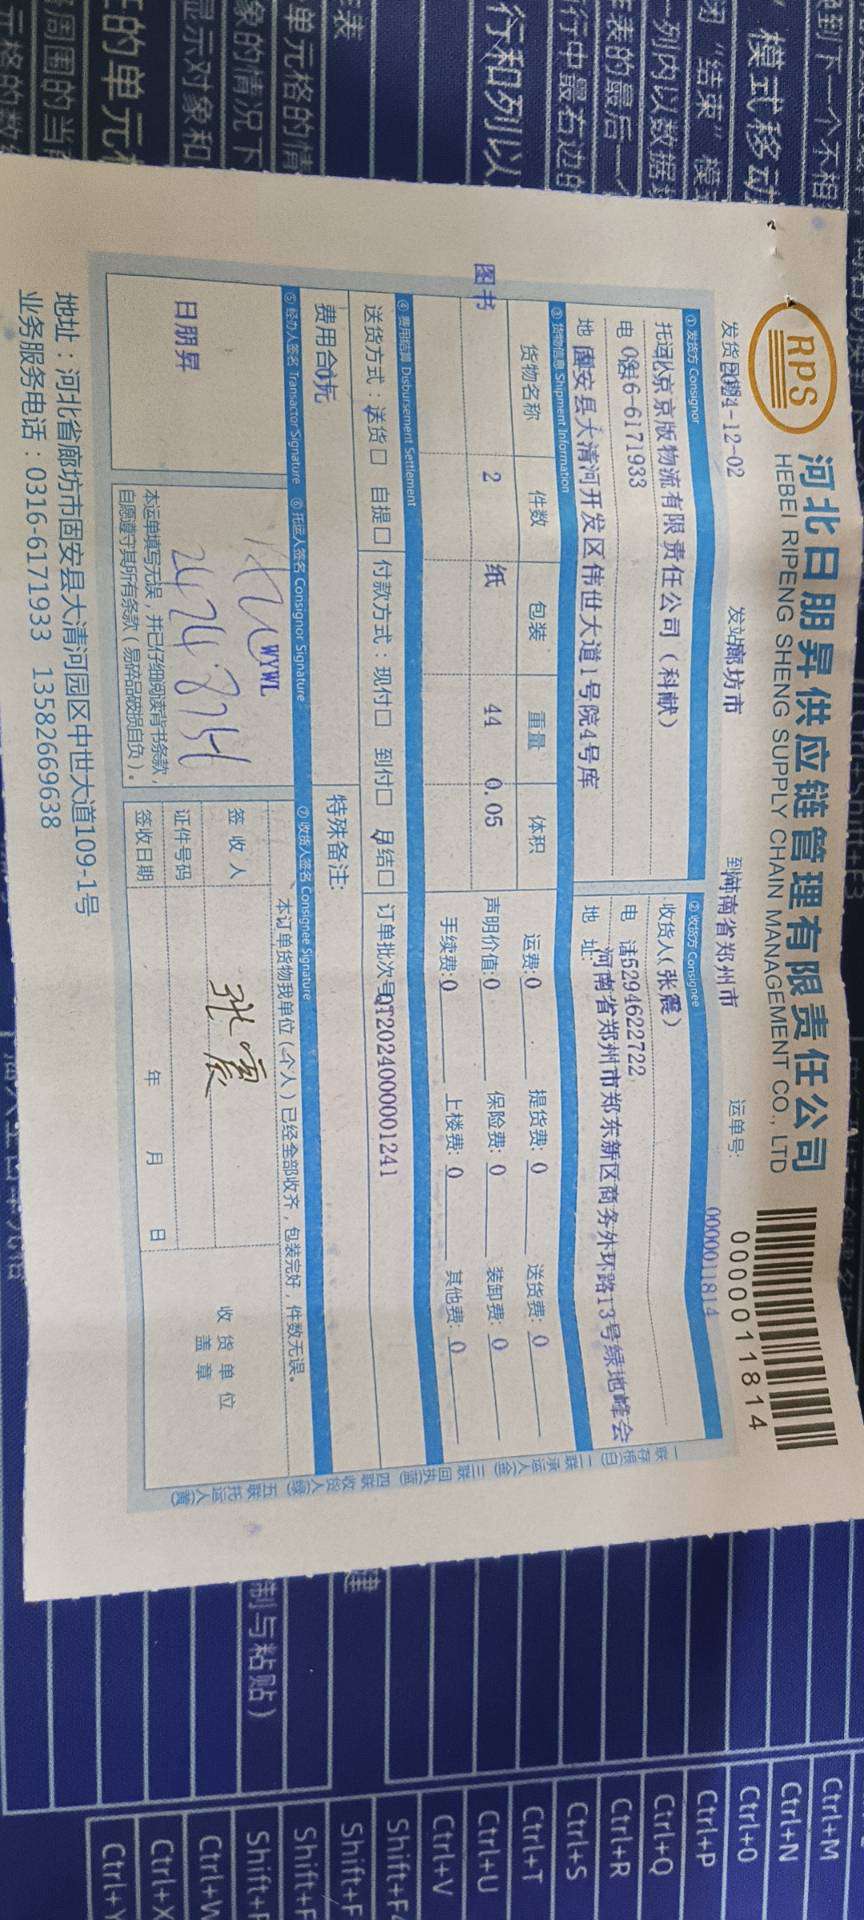 RPS
河北日朋昇供应链管理有限责任公司
HEBEI RIPENG SHENG SUPPLY CHAIN MANAGEMENT CO., LTD
0000011814
发货日期 4-12-02 发站 廊坊市 到站 河南省郑州市 运单号: 0000011814
① 发货方 Consignor
托运人 京版物流有限责任公司（科献）
电 6-6171933
地 固安县大清河开发区伟世大道1号院4号库
② 收货方 Consignee
收货人（张震）
电 话 5294622722
地 址: 河南省郑州市郑东新区商务外环路13号绿地峰会
③ 货物信息 Shipment Information
货物名称 件数 包装 重量 体积
图书 2 纸 44 0.05
运费: 0 提货费: 0 送货费: 0
声明价值: 0 保险费: 0 装卸费: 0
手续费: 0 上楼费: 0 其他费: 0
④ 费用结算 Disbursement Settlement
送货方式：送货□ 自提□ 付款方式：现付□ 到付□ 月结□ 订单批次号 QT2024000001241
费用合 0元 特殊备注:
⑤ 经办人签名 Transactor Signature ⑥ 托运人签名 Consignor Signature ⑦ 收货人签名 Consignee Signature
日朋昇
WYWL
本运单填写无误，并已仔细阅读背书条款，
自愿遵守其所有条款（易碎品破损自负）。
本订单货物我单位（个人）已经全部收齐，包装完好，件数无误。
签 收 人 张震
证件号码
签收日期 年 月 日
收 货 单 位
盖 章
一联 存根(白) 二联 承运人(金) 三联 回执(蓝) 四联 收货人(绿) 五联 托运人(黄)
地址：河北省廊坊市固安县大清河园区中世大道109-1号
业务服务电话：0316-6171933 13582669638
换到下一个不相
模式移动
闭“结束”模
一列内以数据
表的最后一个
行中最右边的
行和列以
单元格的情
象的情况下
显示对象和
的单元格
周围的当前
元格的数
制与粘贴）
建
Ctrl+M
Ctrl+N
Ctrl+O
Ctrl+P
Ctrl+Q
Ctrl+R
Ctrl+S
Ctrl+T
Ctrl+U
Ctrl+V
Shift+F
Shift+F
Shift+F
Shift+F
Ctrl+W
Ctrl+X
Ctrl+Y